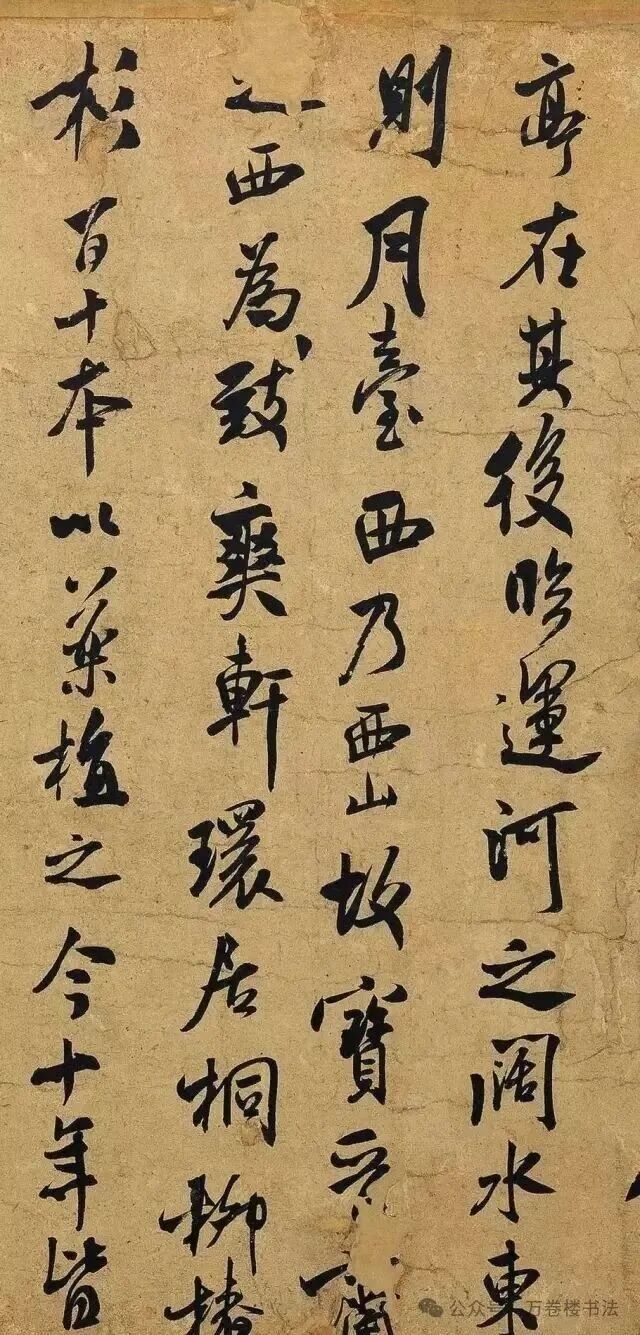 亭在其後臨運河之闊水東
則月臺西乃西山故寶晉齋
之西為致爽軒環居桐柳椿
杉百十本以藥植之今十年皆
公众号·万卷楼书法